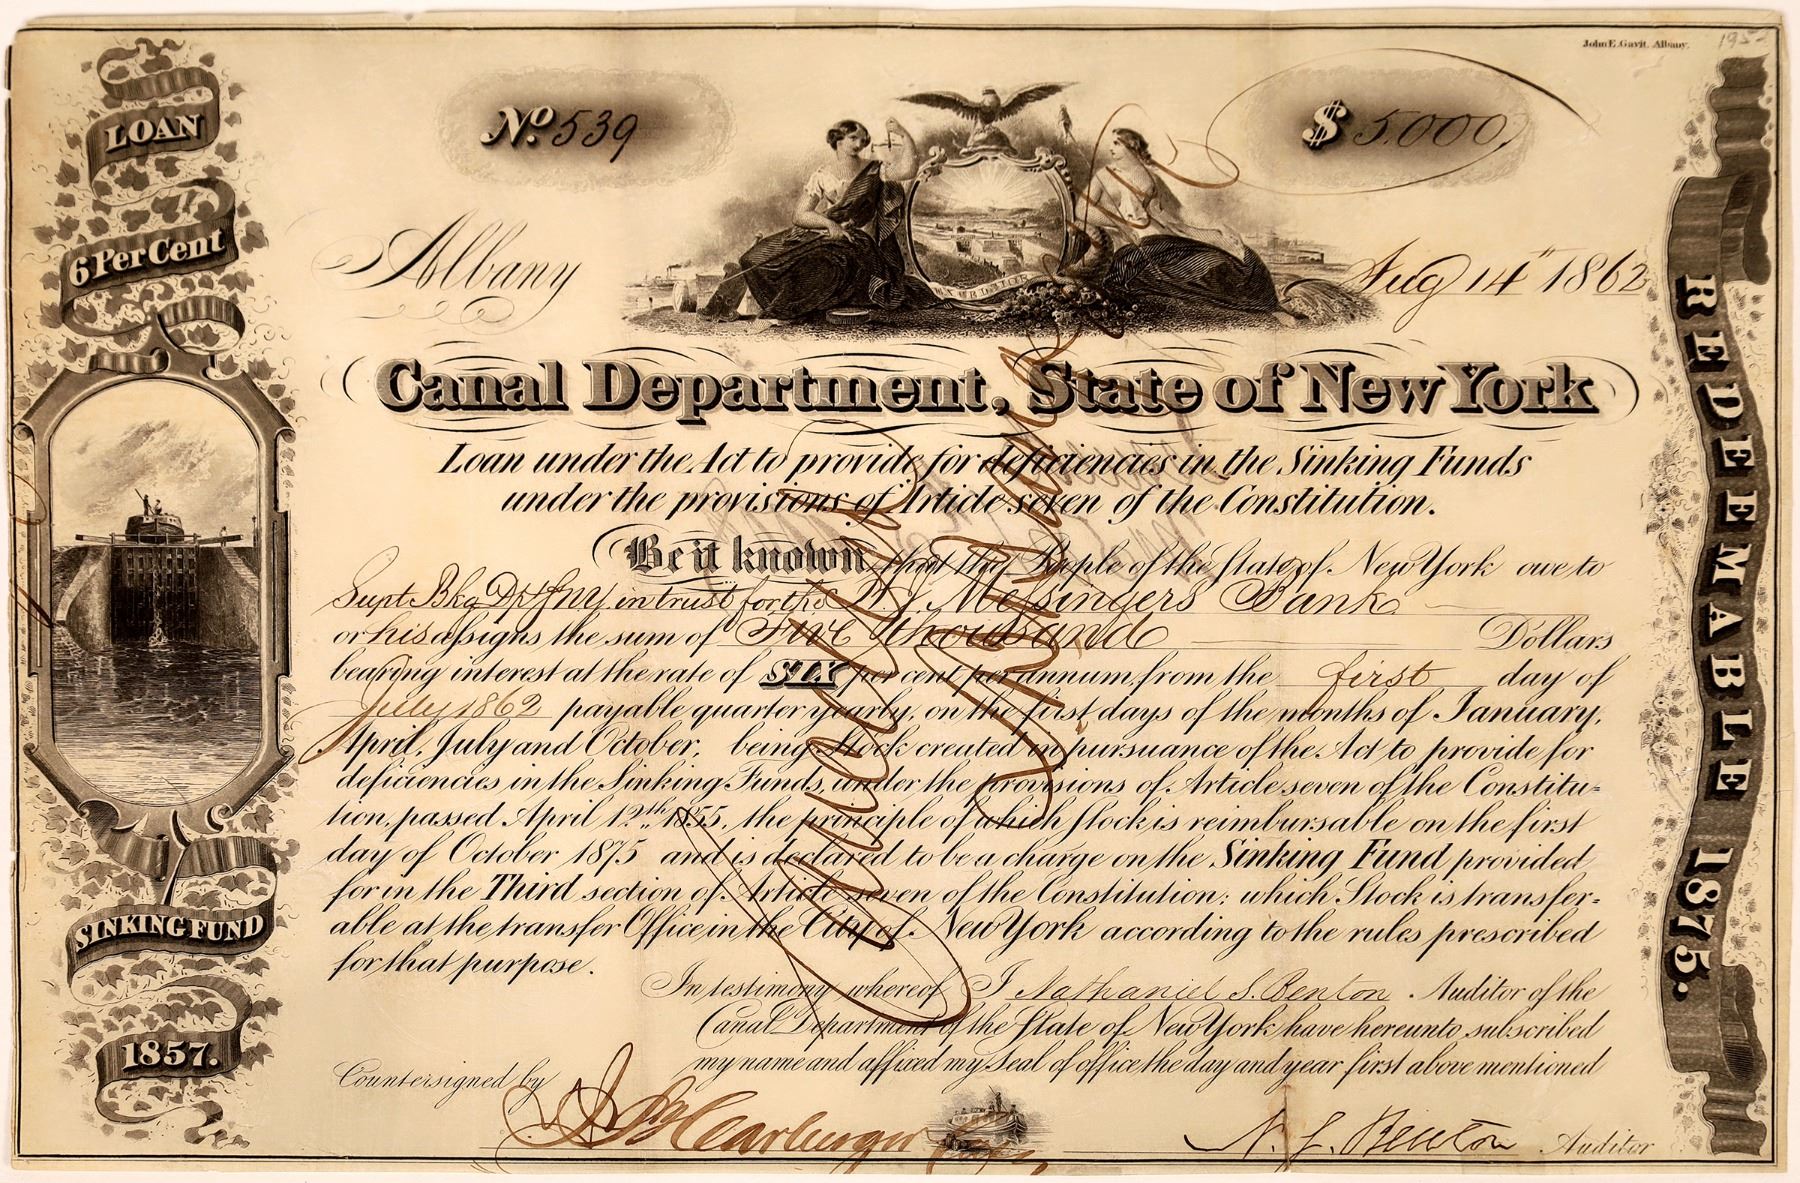 John E. Gavit, Albany.
195
LOAN
6 Per Cent
SINKING FUND
1857.
No. 539
$ 5.000
Albany
Aug 14th 1862
Canal Department, State of New York
Loan under the Act to provide for deficiencies in the Sinking Funds
under the provisions of Article seven of the Constitution.
Be it known that the People of the State of New York owe to
Supt Bkg Dpt in trust for the Messingers Bank
or his assigns the sum of Five Thousand Dollars
bearing interest at the rate of SIX per cent per annum, from the first day of
July 1862 payable quarter yearly, on the first days of the months of January,
April, July and October, being Stock created in pursuance of the Act to provide for
deficiencies in the Sinking Funds, under the provisions of Article seven of the Constitu-
tion, passed April 12th 1855, the principle of which Stock is reimbursable on the first
day of October 1875 and is declared to be a charge on the Sinking Fund provided
for in the Third section of Article seven of the Constitution; which Stock is transfer-
able at the transfer Office in the City of New York according to the rules prescribed
for that purpose.
In testimony whereof I Nathaniel S. Benton Auditor of the
Canal Department of the State of New York have hereunto subscribed
my name and affixed my Seal of office the day and year first above mentioned
Countersigned by
N. S. Benton Auditor
REDEEMABLE 1875.